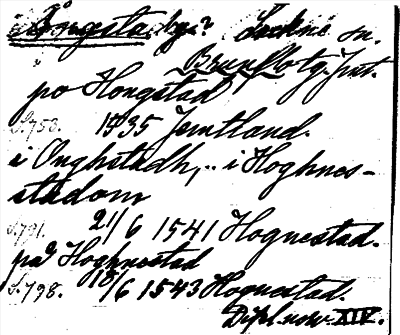 Ångsta by? Lockne sn.
Brunflo tg. Jmt.
po Hongstad
S. 753. 1535 Jemtland.
i Onghstadh,.. i Hoghnes-
stadom
S. 791. 21/6 1541 Hognestad.
på Hoghnestad
S. 798. 18/6 1543 Hognestad.
Dipl. norv. XIV.